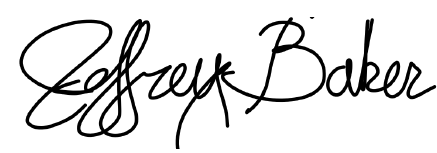 Jeffrey Baker